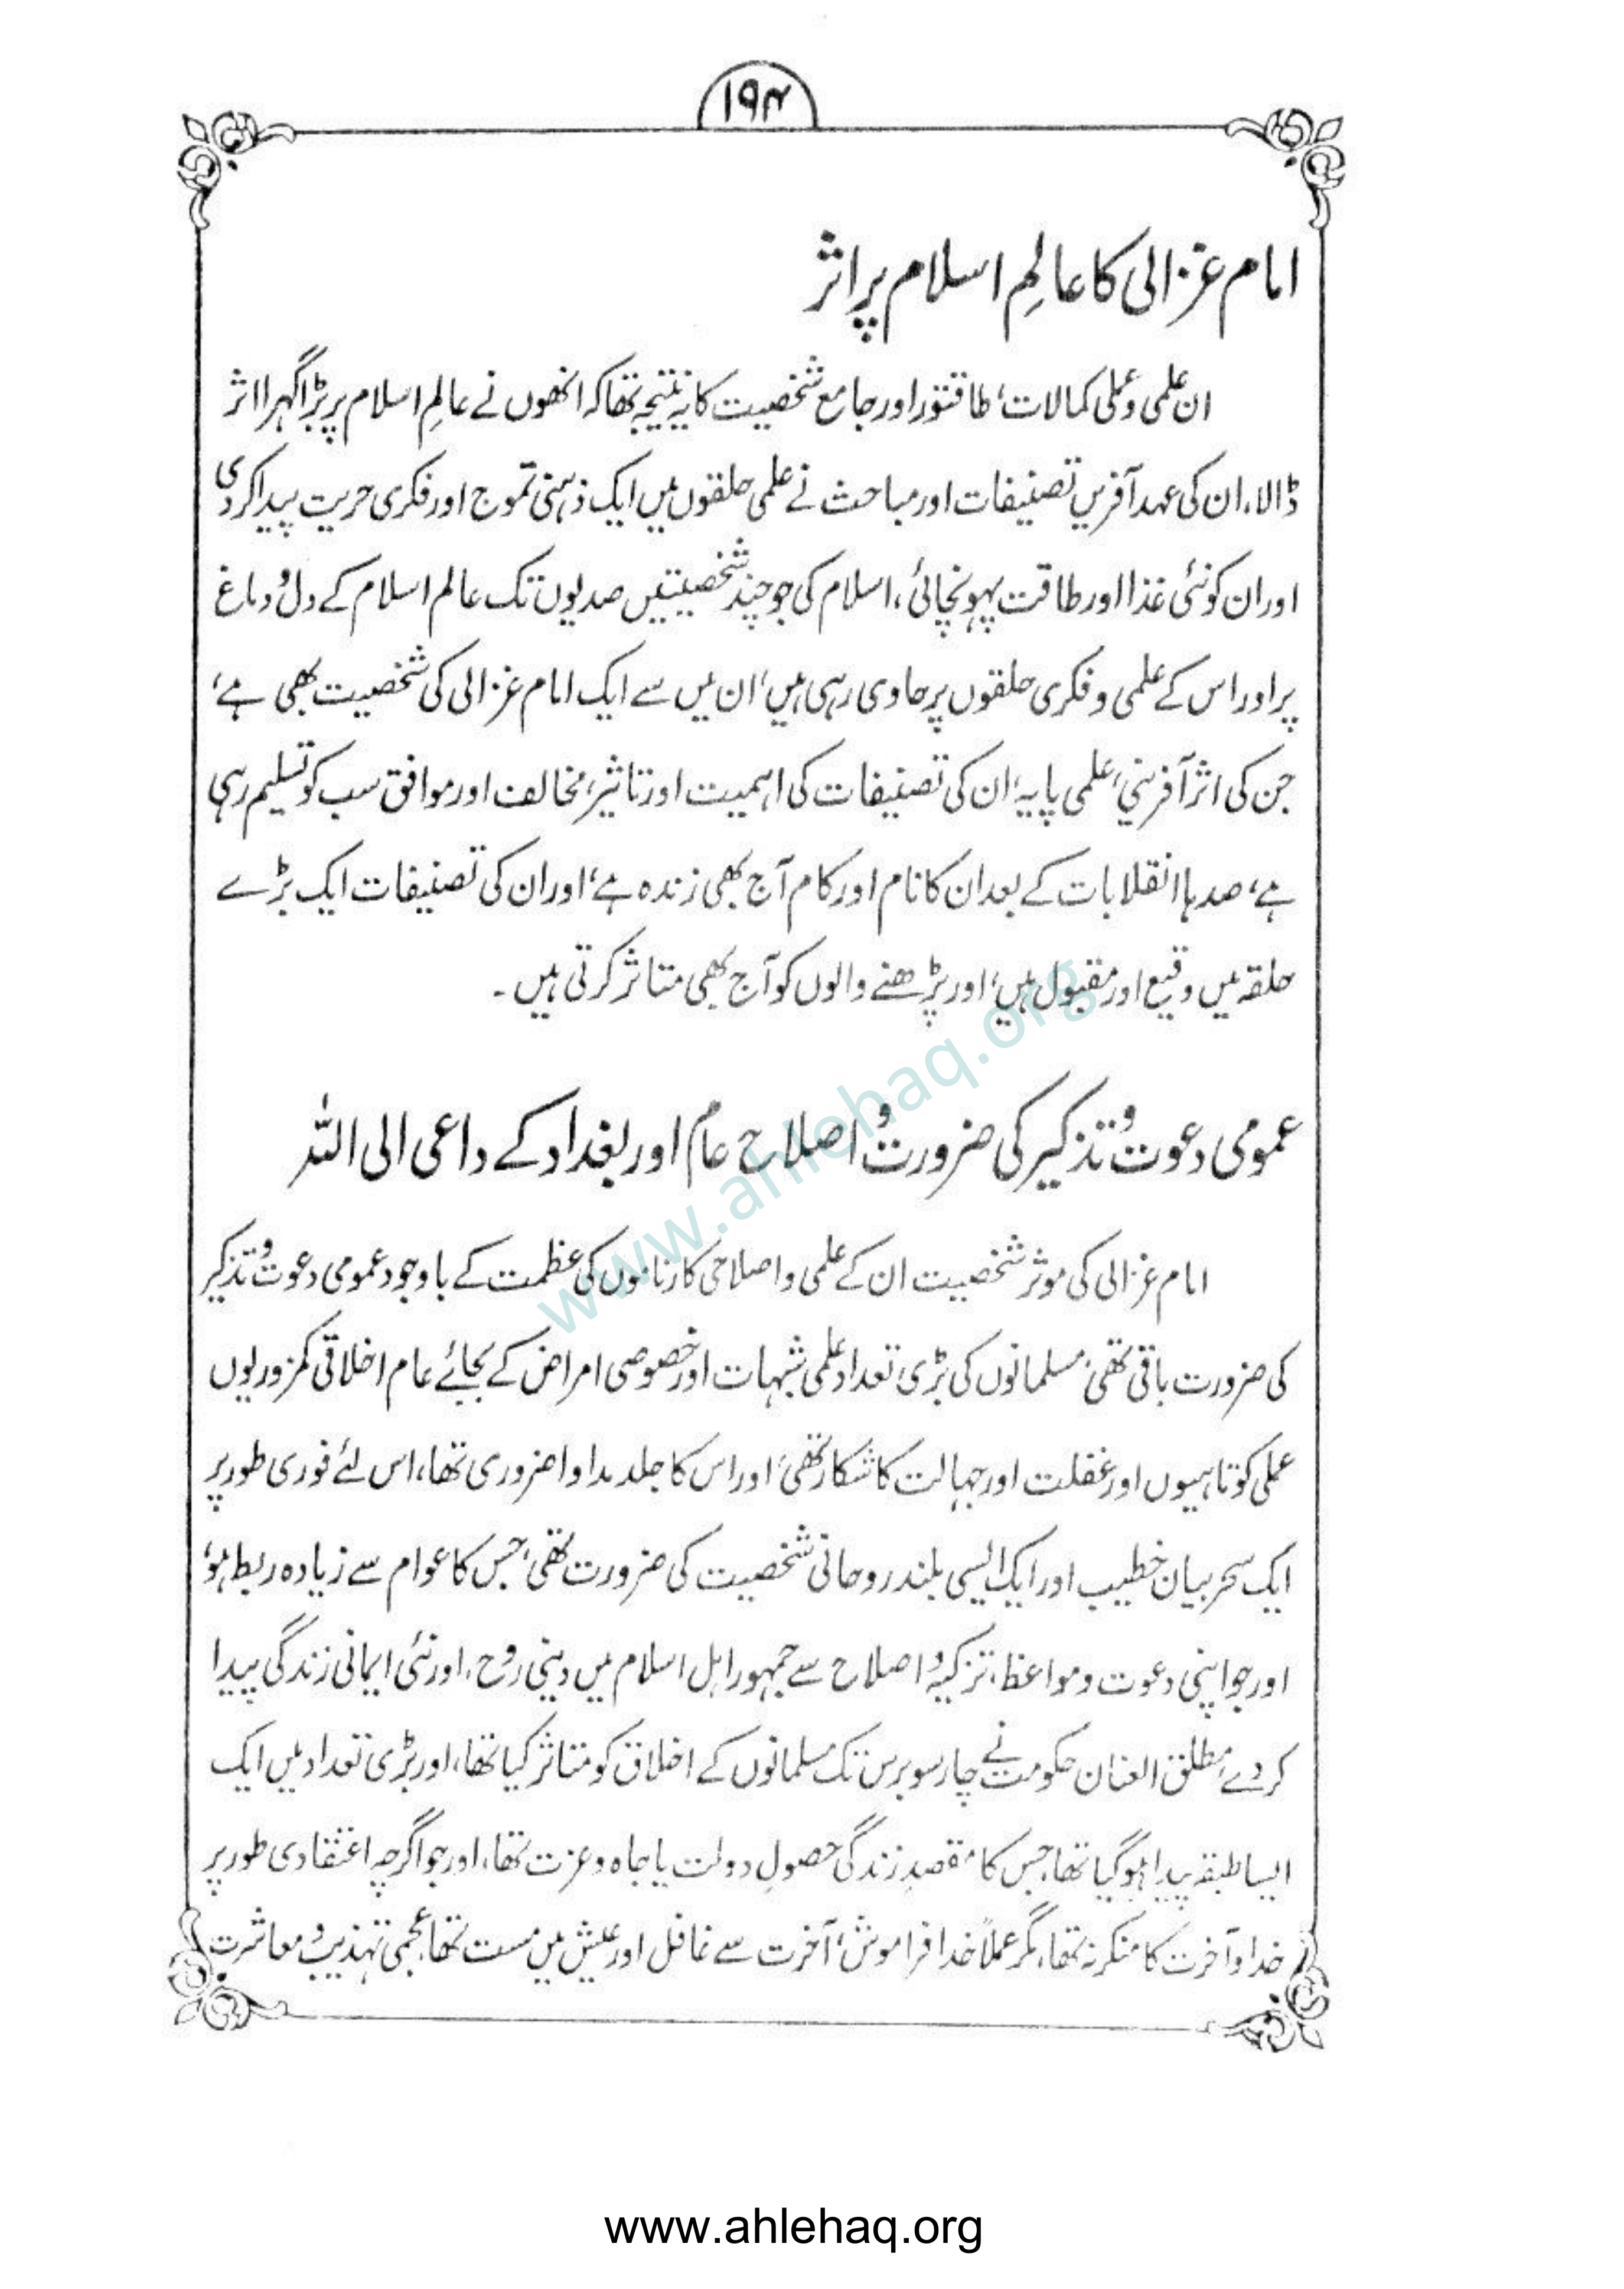 ۱۹۴
امام غزالی کا عالمِ اسلام پر اثر
ان علمی و عملی کمالات، طاقتور اور جامع شخصیت کا یہ نتیجہ تھا کہ انھوں نے عالمِ اسلام پر بڑا گہرا اثر
ڈالا، ان کی عہد آفریں تصنیفات اور مباحث نے علمی حلقوں میں ایک ذہنی تموج اور فکری حریت پیدا کر دی
اور ان کو نئی غذا اور طاقت پہونچائی، اسلام کی جو چند شخصیتیں صدیوں تک عالم اسلام کے دل و دماغ
پر اور اس کے علمی و فکری حلقوں پر حاوی رہی ہیں، ان میں سے ایک امام غزالی کی شخصیت بھی ہے،
جن کی اثر آفرینی، علمی پایہ، ان کی تصنیفات کی اہمیت اور تاثیر، مخالف اور موافق سب کو تسلیم رہی
ہے، صدہا انقلابات کے بعد ان کا نام اور کام آج بھی زندہ ہے، اور ان کی تصنیفات ایک بڑے
حلقہ میں وقیع اور مقبول ہیں، اور پڑھنے والوں کو آج بھی متاثر کرتی ہیں۔
عمومی دعوت و تذکیر کی ضرورت و اصلاح عام اور بغداد کے داعی الی اللہ
امام غزالی کی موثر شخصیت ان کے علمی و اصلاحی کارناموں کی عظمت کے باوجود عمومی دعوت و تذکیر
کی ضرورت باقی تھی، مسلمانوں کی بڑی تعداد علمی شبہات اور خصوصی امراض کے بجائے عام اخلاقی کمزوریوں
عملی کوتاہیوں اور غفلت اور جہالت کا شکار تھی، اور اس کا جلد مداوا ضروری تھا، اس لئے فوری طور پر
ایک سحر بیان خطیب اور ایک ایسی بلند روحانی شخصیت کی ضرورت تھی، جس کا عوام سے زیادہ ربط ہو،
اور جو اپنی دعوت و مواعظ، تزکیہ و اصلاح سے جمہور اہل اسلام میں دینی روح، اور نئی ایمانی زندگی پیدا
کر دے، مطلق العنان حکومت نے چار سو برس تک مسلمانوں کے اخلاق کو متاثر کیا تھا، اور بڑی تعداد میں ایک
ایسا طبقہ پیدا ہو گیا تھا، جس کا مقصدِ زندگی حصولِ دولت یا جاہ و عزت تھا، اور جو اگرچہ اعتقادی طور پر
خدا و آخرت کا منکر نہ تھا، مگر عملاً خدا فراموش، آخرت سے غافل اور عیش میں مست تھا، عجمی تہذیب و معاشرت
www.ahlehaq.org
www.ahlehaq.org